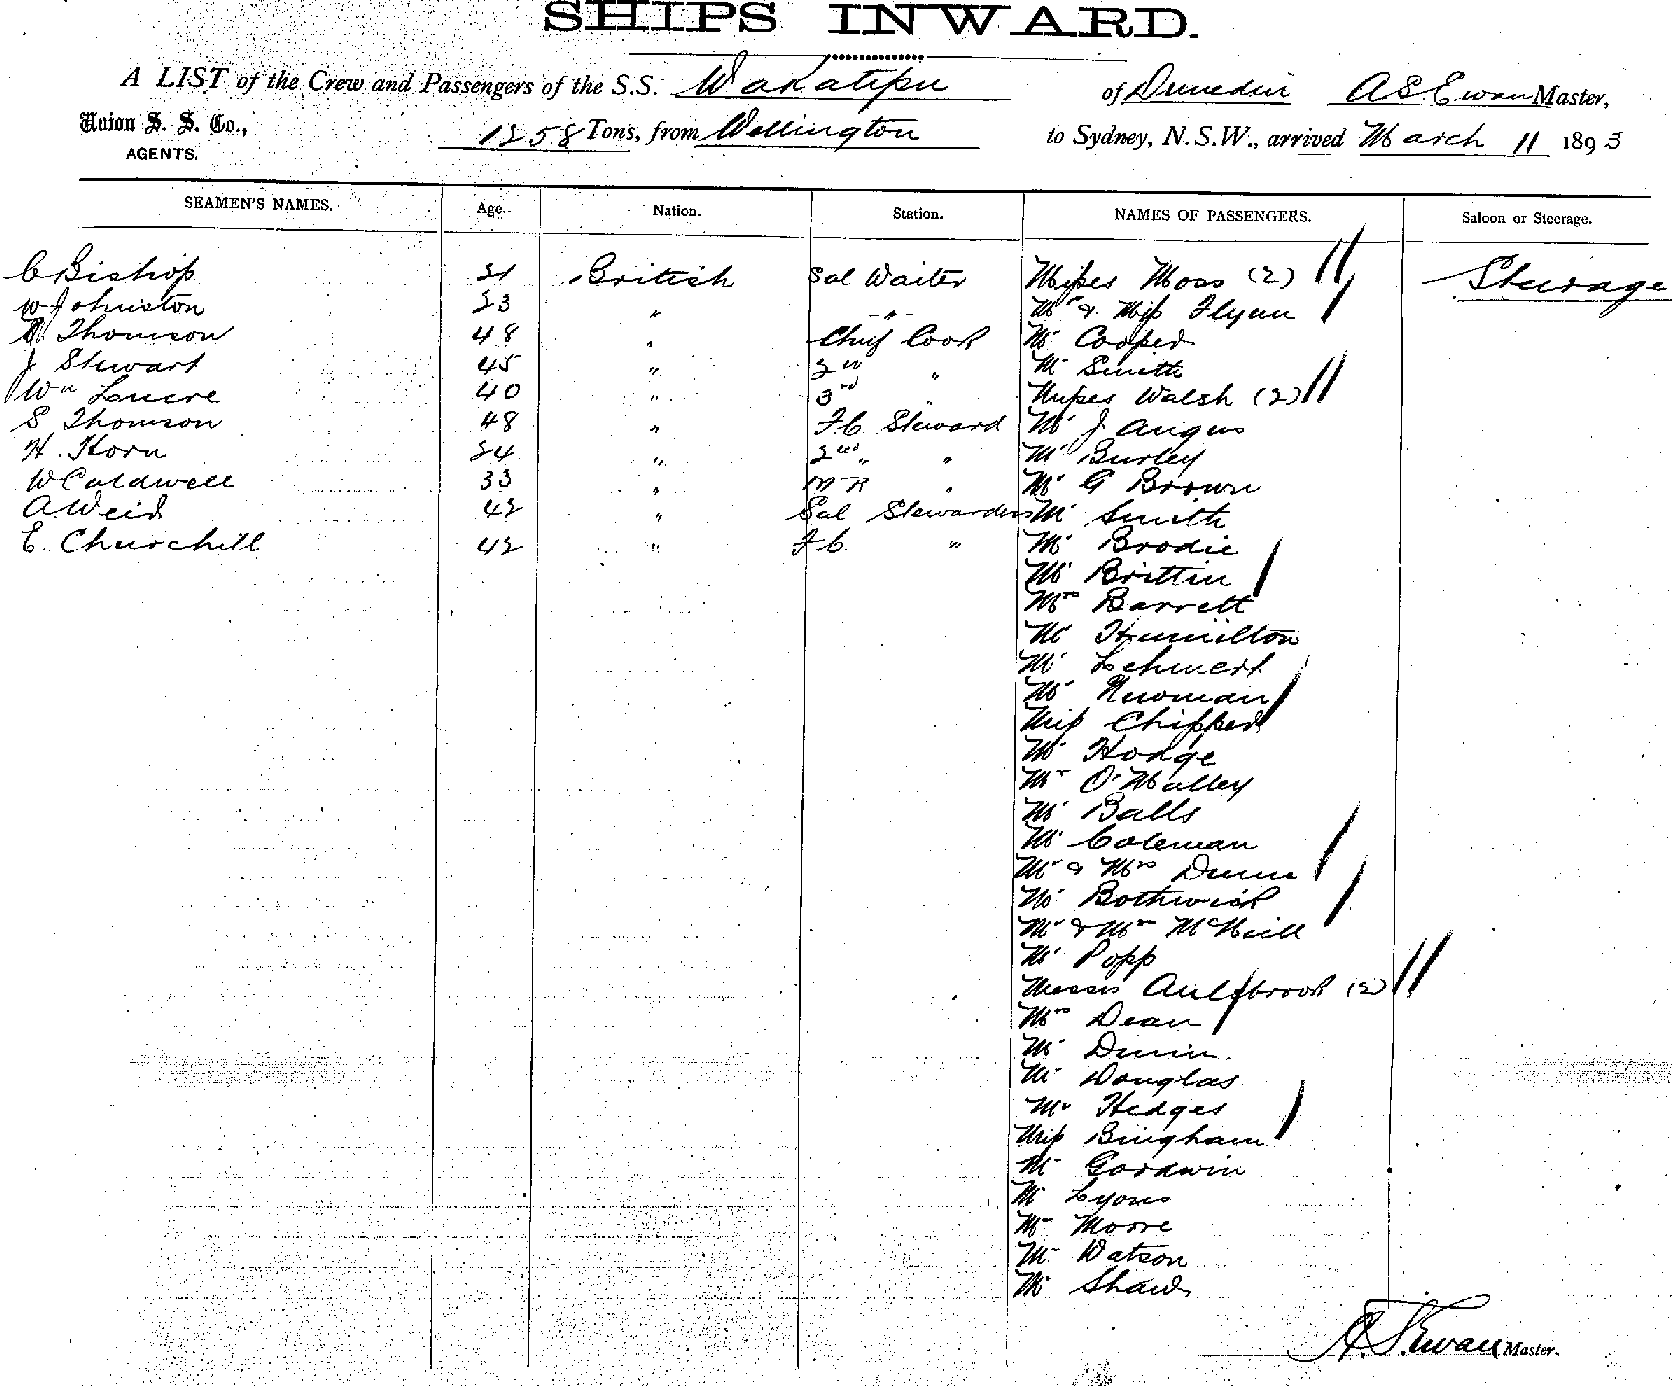 SHIPS INWARD.
A LIST of the Crew and Passengers of the S.S. Wakatipu of Dunedin A S Ewan Master,
Union S. S. Co., 1258 Tons, from Wellington to Sydney, N.S.W., arrived March 11 1893
AGENTS.
SEAMEN'S NAMES. Age. Nation. Station. NAMES OF PASSENGERS. Saloon or Steerage.
C Bishop 21 British Sal Waiter Misses Moss (2) Steerage
W Johnston 23 " " Mr & Miss Flynn
Thomson 48 " Chief Cook Mr Cooper
J Stewart 45 " 2nd " Mr Smith
Wm 40 " 3rd " Misses Walsh (2)
S Thomson 48 " F C Steward Mr J Angus
H. Horn 24 " 2nd " " Mr Burley
W Caldwell 33 " M R " Mr G Brown
A Weir 42 " Sal Stewardess Mr Smith
E. Churchill 42 " F C " Mr Brodie
Mr Brittin
Mrs Barrett
Mr Hamilton
Mr
Mr Newman
Miss Chipper
Mr Hodge
Mr O'Malley
Mr Balls
Mr Coleman
Mr & Mrs Dunn
Mr Bothwick
Mr & Mrs McNeill
Mr Popp
Messrs Aulsbrook (2)
Mrs Dean
Mr Dunn.
Mr Douglas
Mr Hedges
Miss Bingham
Mr Goodwin
Mr Lyons
Mr Moore
Mr Watson
Mr Shaw
A. S. Ewan Master.